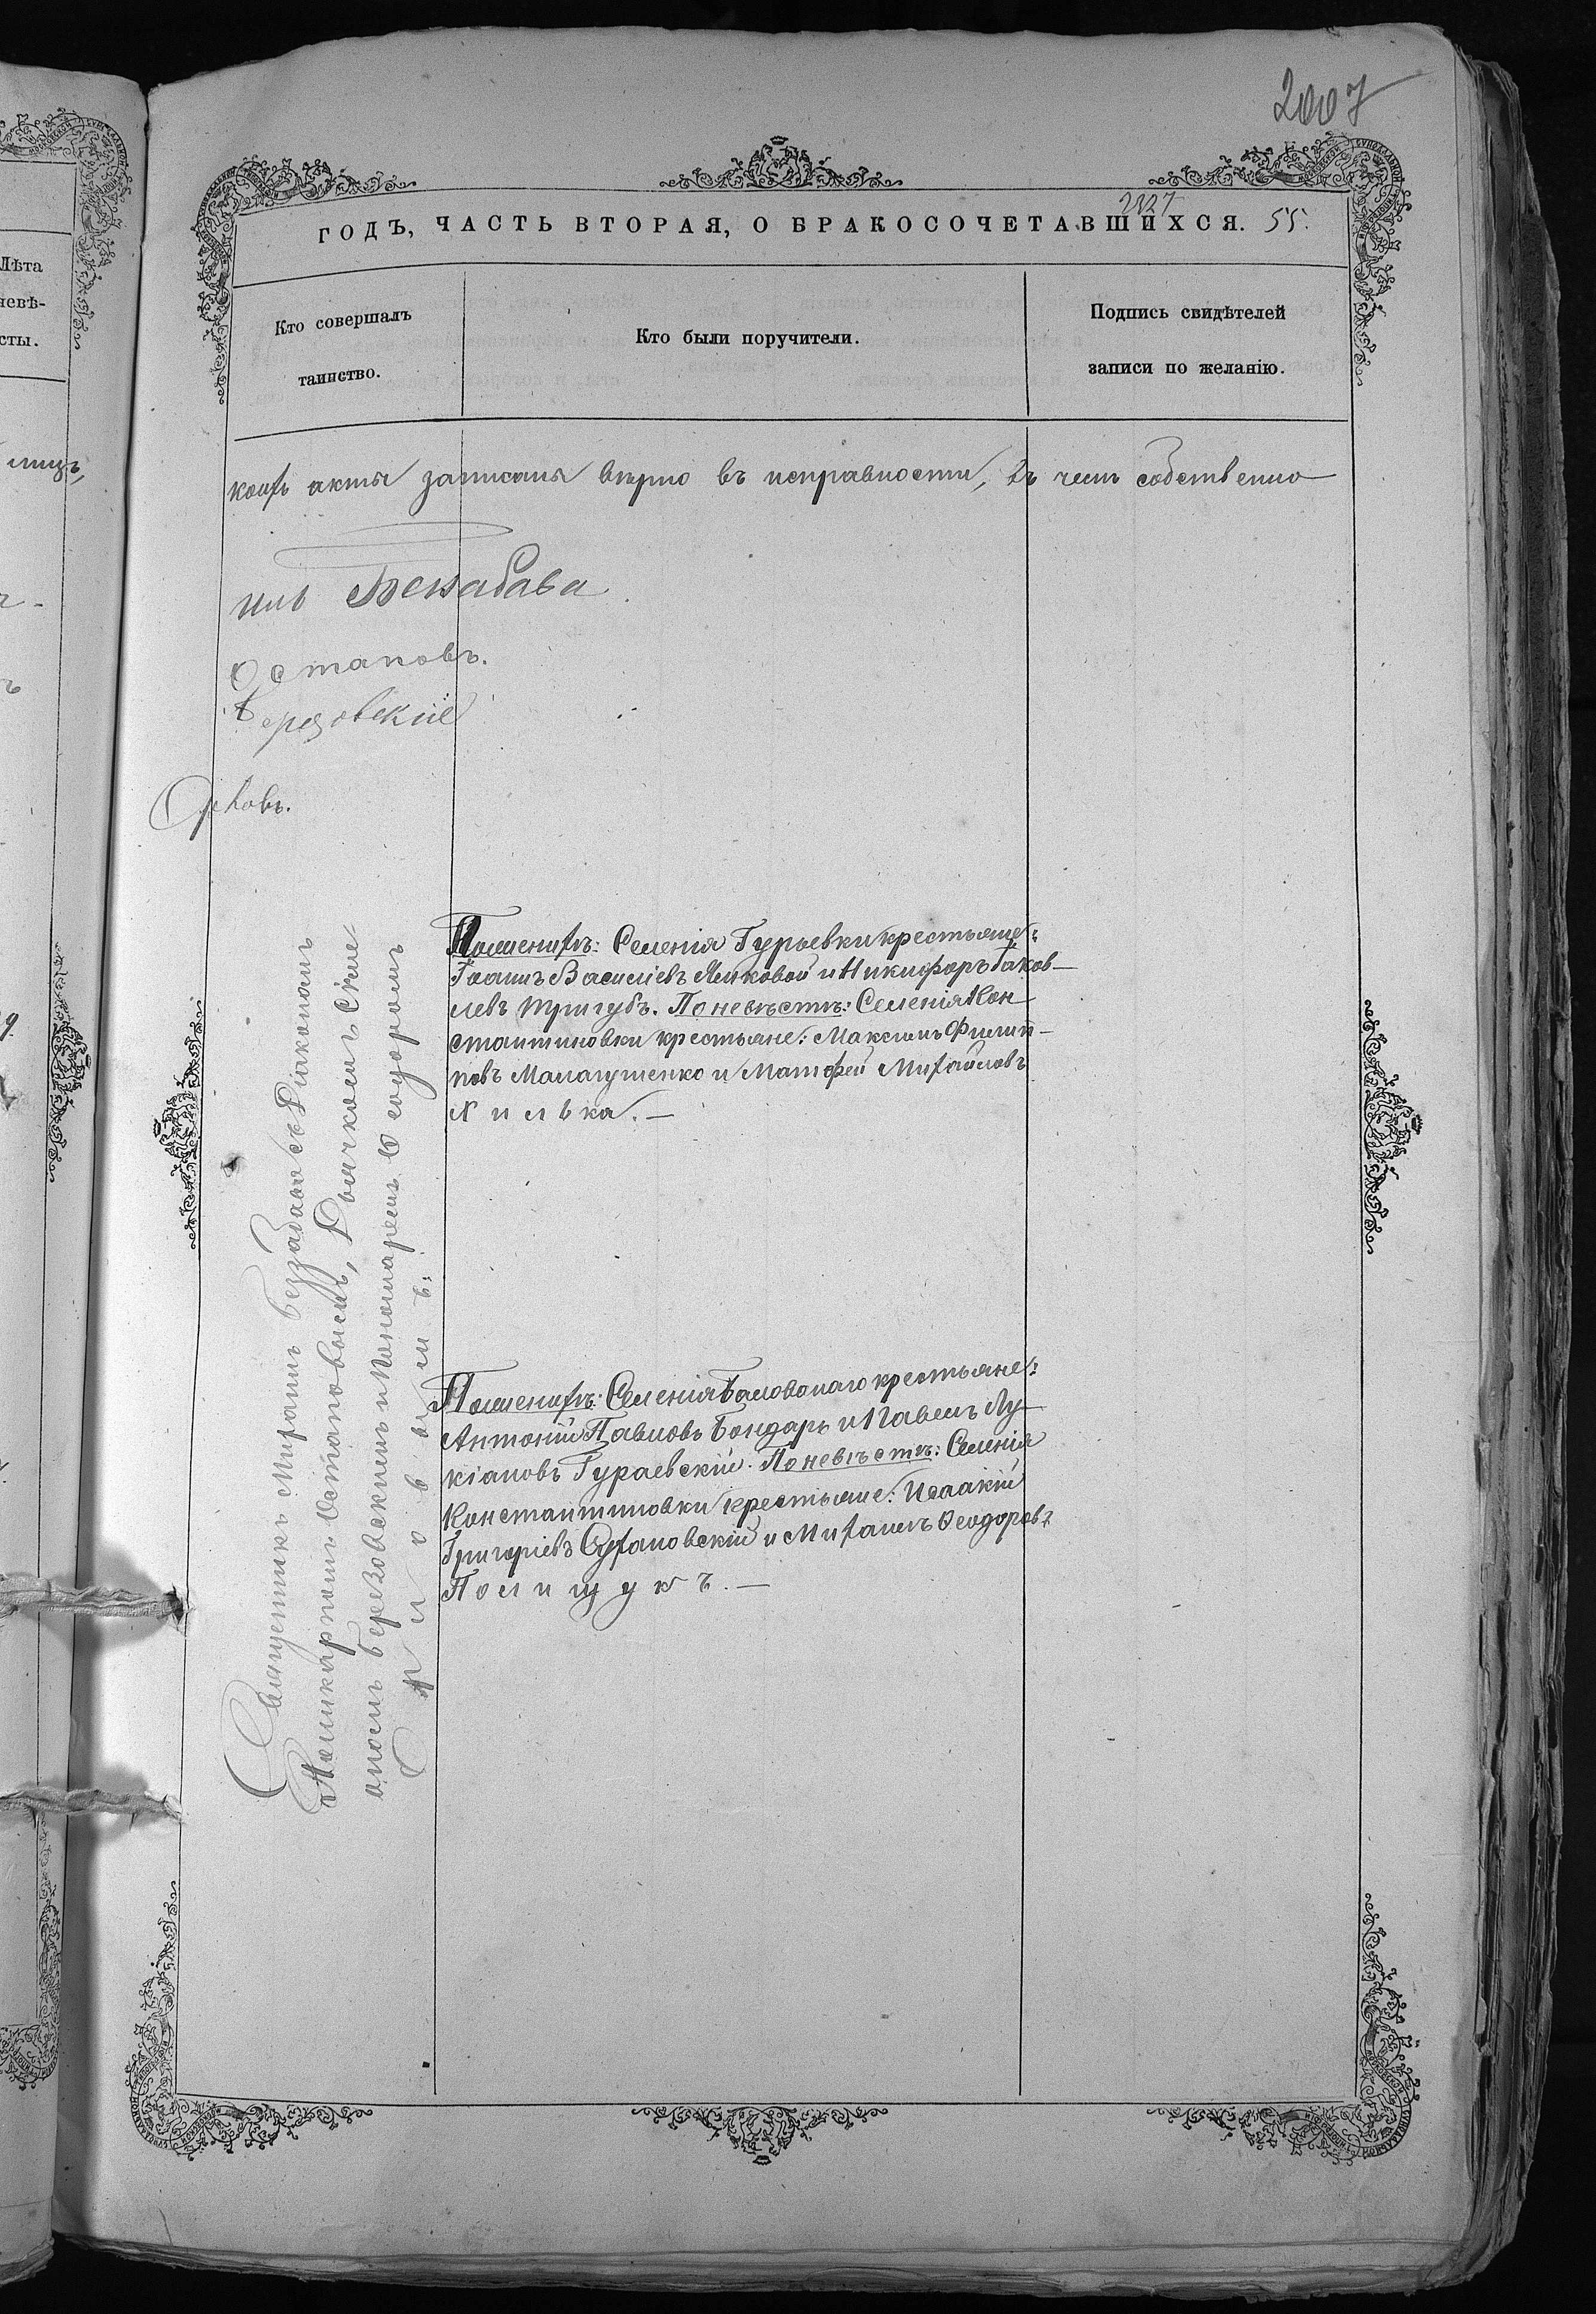 2007
2327
ГОДЪ, ЧАСТЬ ВТОРАЯ, О БРАКОСОЧЕТАВШИХСЯ. 55.
Лѣта
невѣ-
сты.
Кто совершалъ
таинство.
Кто были поручители.
Подпись свидѣтелей
записи по желанію.
коихъ акты записаны вѣрно въ исправности, въ чемъ собственно
Беззабава
Остаповъ.
Березовскій
Орловъ.
Священникъ Миронъ Беззабава съ Діакономъ
Поликарпомъ Остаповымъ, Дьячкомъ Симе
ономъ Березовскимъ и Пономаремъ Ѳеодоромъ
Орловымъ:
По женихѣ: Селенія Гурьевки крестьяне:
Іоаннъ Василіевъ Яниковой и Никифоръ Іаков-
левъ Тригубъ. По невѣстѣ: Селенія Кон
стантиновки крестьяне: Максимъ Филип-
повъ Малагушенко и Матфей Михайловъ
Хилька. —
По женихѣ: Селенія Баловнаго крестьяне:
Антоній Павловъ Бондарь и Павелъ Лу-
кіановъ Гураевскій. По невѣстѣ: Селенія
Константиновки крестьяне: Исаакій
Григоріевъ Сухановскій и Михаилъ Ѳеодоровъ
Полищукъ. —